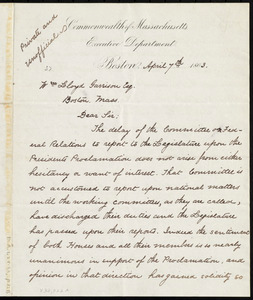 Private and
unofficial
Commonwealth of Massachusetts
Executive Department
Boston, April 7th 1863.
Wm Lloyd Garrison Esq.
Boston Mass
Dear Sir:
The delay of the Committee on Fed-
eral Relations to report to the Legislature upon the
Presidents Proclamation does not arise from either
hesitancy or want of interest. That Committee is
not accustomed to report upon national matters
until the working committee, as they are called,
have discharged their duties and the Legislature
has passed upon their reports. Indeed the sentiment
of both Houses and all their members is so nearly
unanimous in support of the Proclamation, and
opinion in that direction has gained solidity so